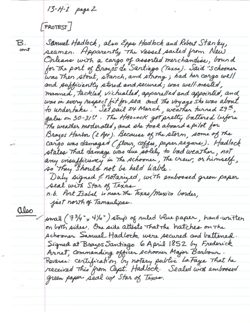 13-H-1 page 2
[PROTEST]
B. Samuel Hadlock, also Epps Hadlock and Robert Stanley,
seamen. Apparently the vessel sailed from New
Orleans with a cargo of assorted merchandise, bound
for the port of Brazos de Santiago (Texas). Said "Schooner
was then stout, staunch, and strong; had her cargo well
and sufficiently stored and secured; was well masted,
manned, tackled, victualled, apparelled and appointed, and
was in every respect fit for sea and the voyage she was about
to undertake." Set sail on March, weather turned
gales on 30-31st. The Hancock got pretty battered before
the weather moderated, and she took aboard a pilot for
Brazos Harbor (2 Apr). Because of the storm, some of the
cargo was damaged (flour, coffee, papers, segars). Hadlock
states that damage was due solely to bad weather, not
any insufficiency in the schooner, the crew, or himself,
so they should not be held liable.
Duly signed & notarized, with embossed green paper
seal with Star of Texas.
n.b. Port Isabel is near the Texas/Mexico border,
just north of Tamaulipas.
Also
small (7 3/4" x 4 1/2") strip of ruled blue paper, hand-written
on both sides. One side attests that the hatches on the
schooner Samuel Hadlock were secured and battened.
Signed at Brazos Santiago 6 April 1852 by Frederick
Arret, commanding officer schooner Major Barbour.
Reverse: certification by notary public that he
received this from Capt. Hadlock. Sealed with embossed
green paper seal w/ Star of Texas.